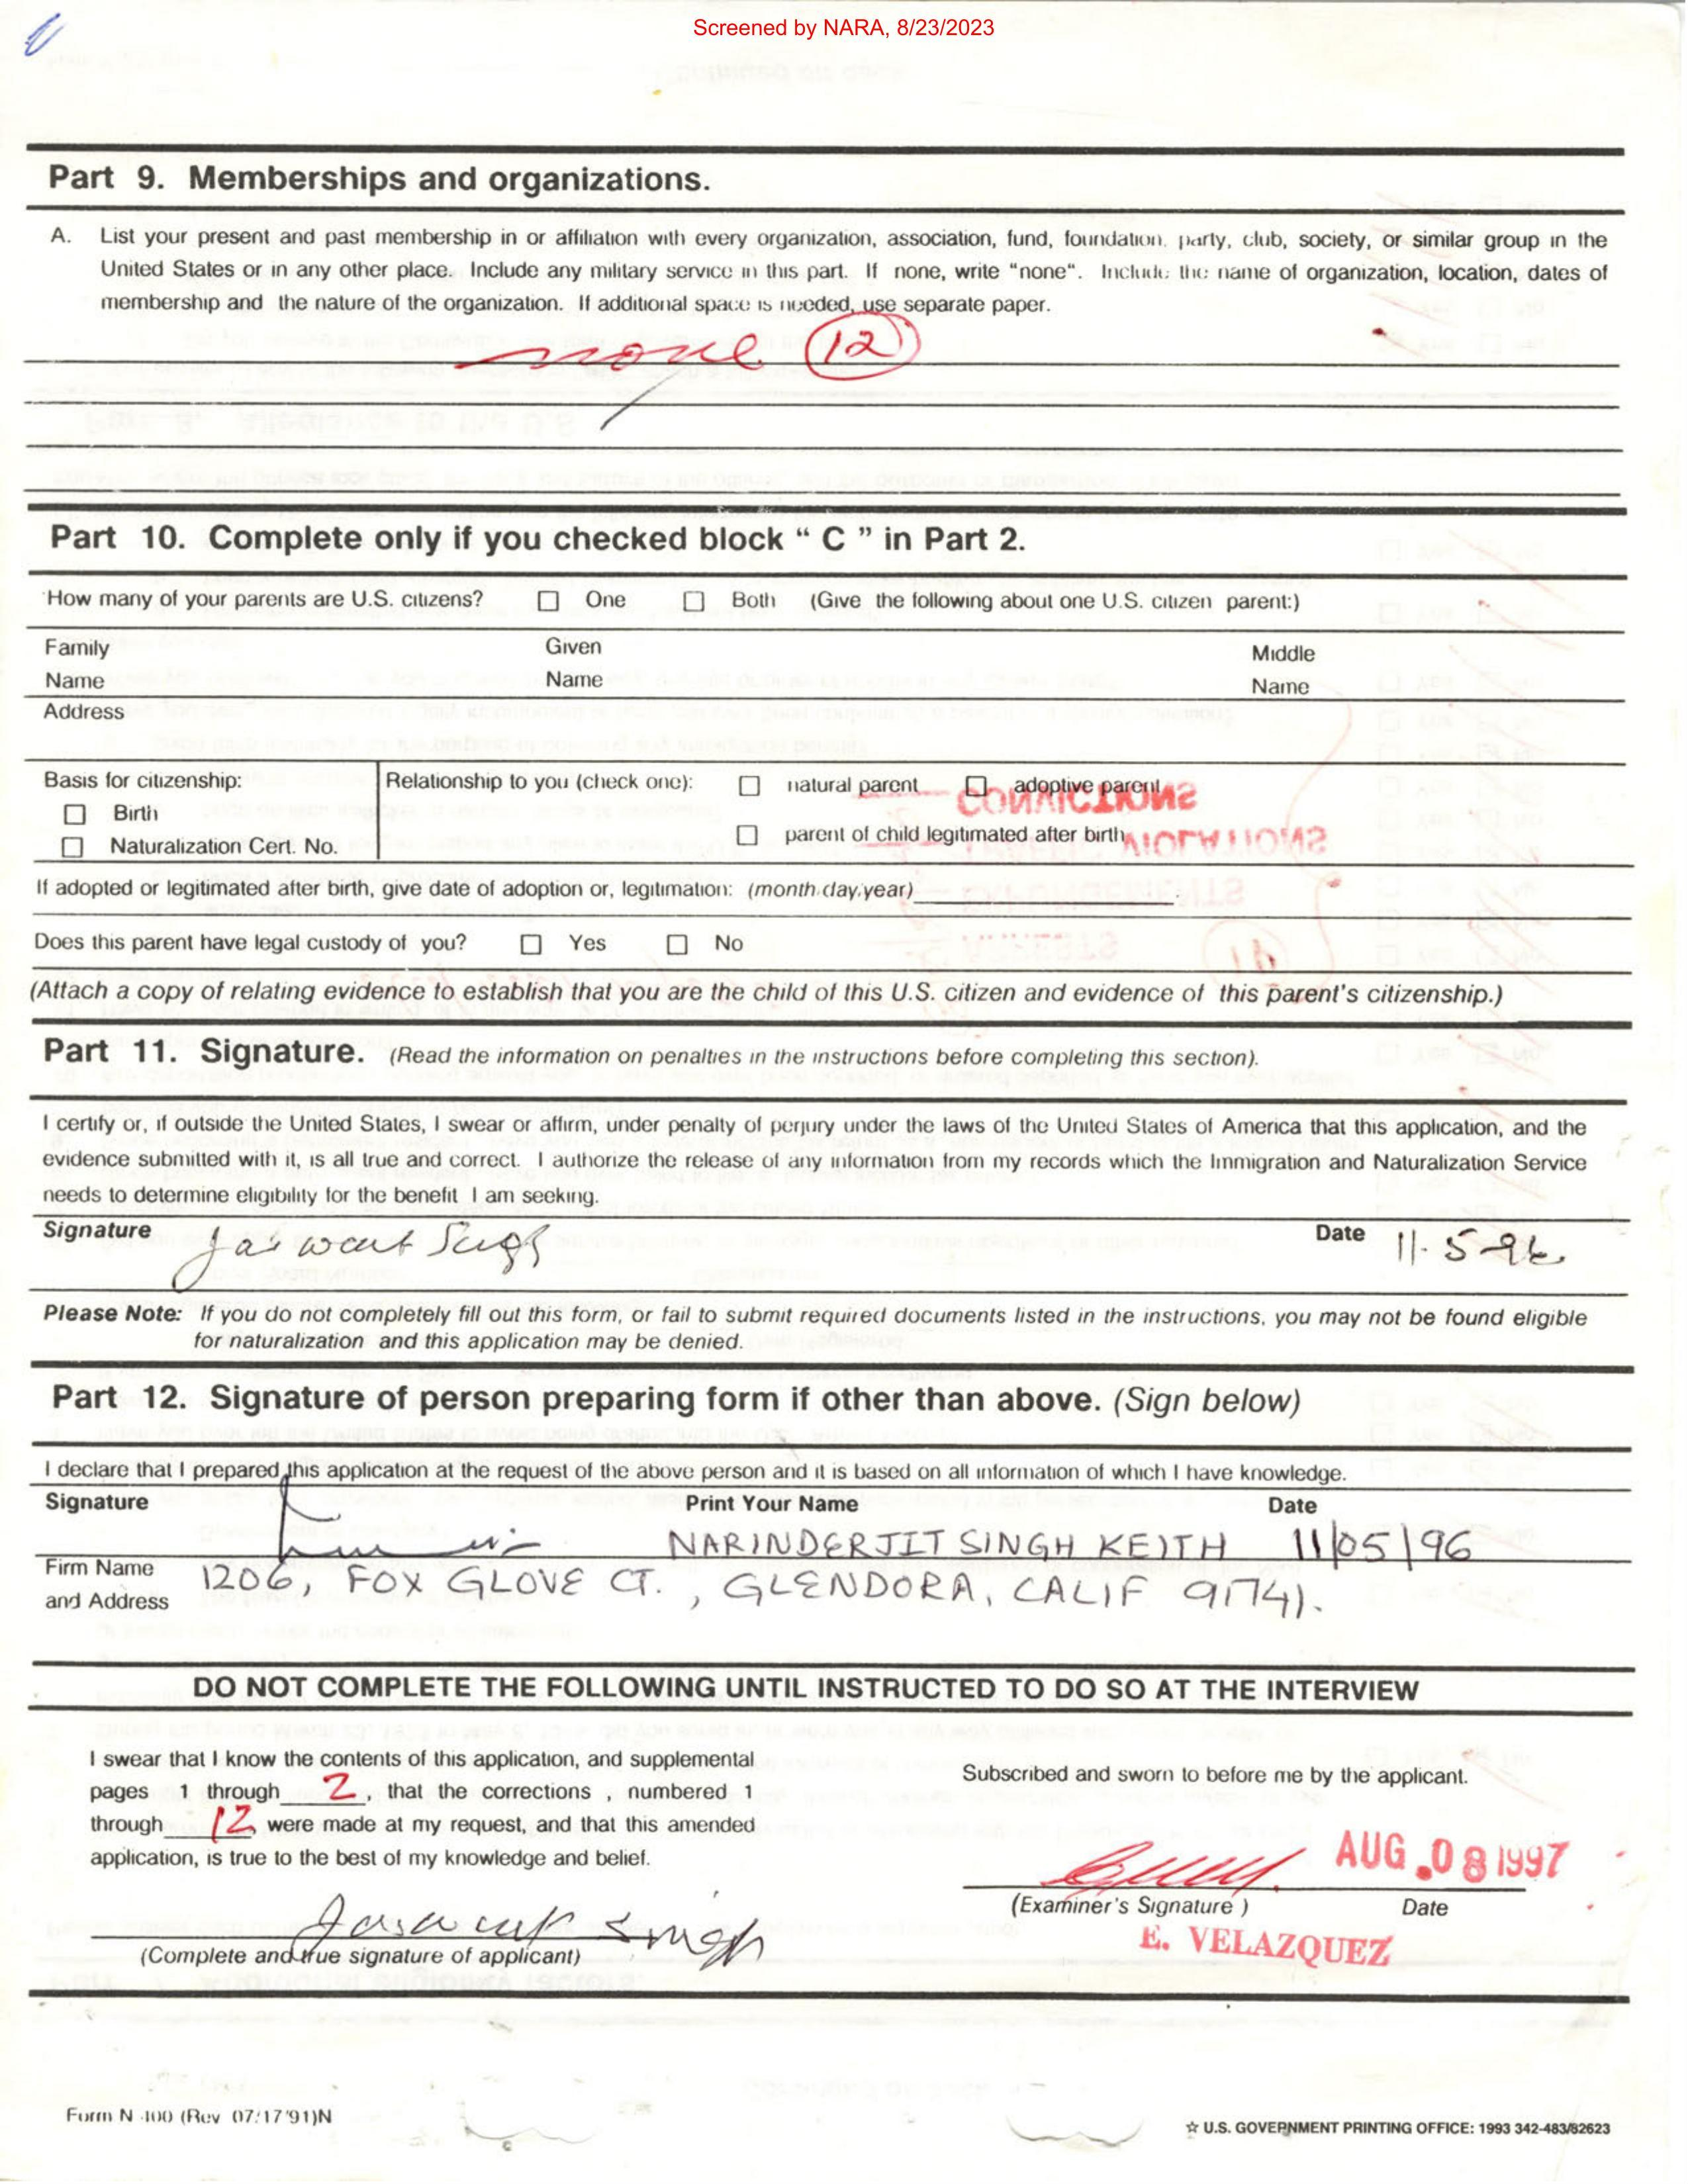 Screened by NARA, 8/23/2023
Part 9. Memberships and organizations.
A. List your present and past membership in or affiliation with every organization, association, fund, foundation, party, club, society, or similar group in the
United States or in any other place. Include any military service in this part. If none, write "none". Include the name of organization, location, dates of
membership and the nature of the organization. If additional space is needed, use separate paper.
none 12
Part 10. Complete only if you checked block " C " in Part 2.
How many of your parents are U.S. citizens? ☐ One ☐ Both (Give the following about one U.S. citizen parent:)
Family Given Middle
Name Name Name
Address
Basis for citizenship: Relationship to you (check one): ☐ natural parent ☐ adoptive parent
☐ Birth
☐ parent of child legitimated after birth
☐ Naturalization Cert. No.
If adopted or legitimated after birth, give date of adoption or, legitimation: (month.day.year)
Does this parent have legal custody of you? ☐ Yes ☐ No
(Attach a copy of relating evidence to establish that you are the child of this U.S. citizen and evidence of this parent's citizenship.)
Part 11. Signature. (Read the information on penalties in the instructions before completing this section).
I certify or, if outside the United States, I swear or affirm, under penalty of perjury under the laws of the United States of America that this application, and the
evidence submitted with it, is all true and correct. I authorize the release of any information from my records which the Immigration and Naturalization Service
needs to determine eligibility for the benefit I am seeking.
Signature Jaswant Singh Date 11-5-96
Please Note: If you do not completely fill out this form, or fail to submit required documents listed in the instructions, you may not be found eligible
for naturalization and this application may be denied.
Part 12. Signature of person preparing form if other than above. (Sign below)
I declare that I prepared this application at the request of the above person and it is based on all information of which I have knowledge.
Signature Print Your Name Date
NARINDERJIT SINGH KEITH 11/05/96
Firm Name
and Address 1206, FOX GLOVE CT., GLENDORA, CALIF 91741.
DO NOT COMPLETE THE FOLLOWING UNTIL INSTRUCTED TO DO SO AT THE INTERVIEW
I swear that I know the contents of this application, and supplemental
pages 1 through 2, that the corrections , numbered 1
through 12, were made at my request, and that this amended
application, is true to the best of my knowledge and belief.
Jaswant Singh
(Complete and true signature of applicant)
Subscribed and sworn to before me by the applicant.
AUG 08 1997
(Examiner's Signature ) Date
E. VELAZQUEZ
Form N-400 (Rev 07/17/91)N
☆ U.S. GOVERNMENT PRINTING OFFICE: 1993 342-483/82623